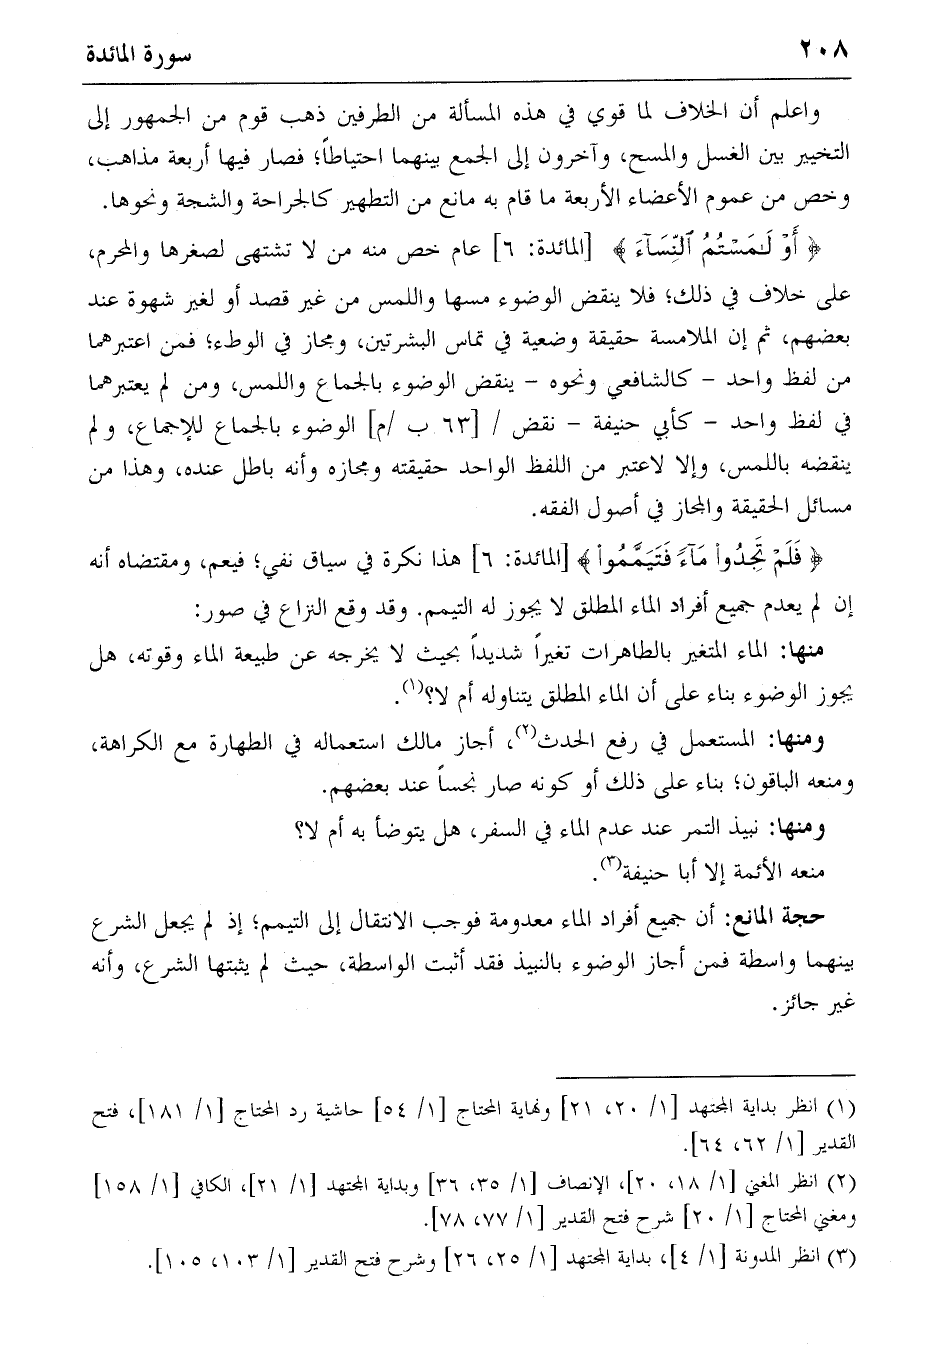 ٢٠٨
سورة المائدة
واعلم أن الخلاف لما قوي في هذه المسألة من الطرفين ذهب قوم من الجمهور إلى
التخيير بين الغسل والمسح، وآخرون إلى الجمع بينهما احتياطاً؛ فصار فيها أربعة مذاهب،
وخص من عموم الأعضاء الأربعة ما قام به مانع من التطهير كالجراحة والشجة ونحوها.
﴿ أَوْ لَـٰمَسْتُمُ ٱلنِّسَآءَ ﴾ [المائدة: ٦] عام خص منه من لا تشتهى لصغرها والمحرم،
على خلاف في ذلك؛ فلا ينقض الوضوء مسها واللمس من غير قصد أو لغير شهوة عند
بعضهم، ثم إن الملامسة حقيقة وضعية في تماس البشرتين، ومجاز في الوطء؛ فمن اعتبرهما
من لفظ واحد - كالشافعي ونحوه - ينقض الوضوء بالجماع واللمس، ومن لم يعتبرهما
في لفظ واحد - كأبي حنيفة - نقض / [٦٣ ب /م] الوضوء بالجماع للإجماع، ولم
ينقضه باللمس، وإلا لاعتبر من اللفظ الواحد حقيقته ومجازه وأنه باطل عنده، وهذا من
مسائل الحقيقة والمجاز في أصول الفقه.
﴿ فَلَمْ تَجِدُوا۟ مَآءً فَتَيَمَّمُوا۟ ﴾ [المائدة: ٦] هذا نكرة في سياق نفي؛ فيعم، ومقتضاه أنه
إن لم يعدم جميع أفراد الماء المطلق لا يجوز له التيمم. وقد وقع النزاع في صور:
منها: الماء المتغير بالطاهرات تغيراً شديداً بحيث لا يخرجه عن طبيعة الماء وقوته، هل
يجوز الوضوء بناء على أن الماء المطلق يتناوله أم لا؟(١).
ومنها: المستعمل في رفع الحدث(٢)، أجاز مالك استعماله في الطهارة مع الكراهة،
ومنعه الباقون؛ بناء على ذلك أو كونه صار نجساً عند بعضهم.
ومنها: نبيذ التمر عند عدم الماء في السفر، هل يتوضأ به أم لا؟
منعه الأئمة إلا أبا حنيفة(٣).
حجة المانع: أن جميع أفراد الماء معدومة فوجب الانتقال إلى التيمم؛ إذ لم يجعل الشرع
بينهما واسطة فمن أجاز الوضوء بالنبيذ فقد أثبت الواسطة، حيث لم يثبتها الشرع، وأنه
غير جائز.
(١) انظر بداية المجتهد [١/ ٢٠، ٢١] ونهاية المحتاج [١/ ٥٤] حاشية رد المحتاج [١/ ١٨١]، فتح
القدير [١/ ٦٢، ٦٤].
(٢) انظر المغني [١/ ١٨، ٢٠]، الإنصاف [١/ ٣٥، ٣٦] وبداية المجتهد [١/ ٢١]، الكافي [١/ ١٥٨]
ومغني المحتاج [١/ ٢٠] شرح فتح القدير [١/ ٧٧، ٧٨].
(٣) انظر المدونة [١/ ٤]، بداية المجتهد [١/ ٢٥، ٢٦] وشرح فتح القدير [١/ ١٠٣، ١٠٥].